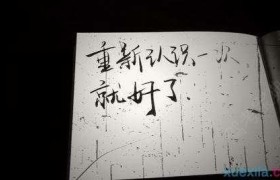 重新认识一次
就好了.